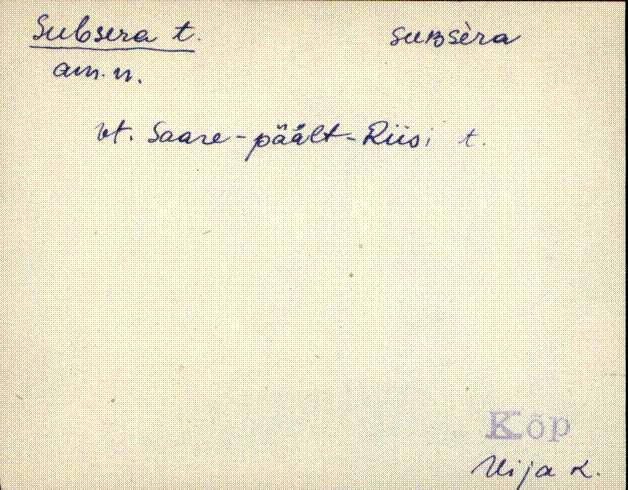 Subsera t. suʙsèra
am. n.
vt. Saare-päält-Riisi t.
Kõp
Uija k.